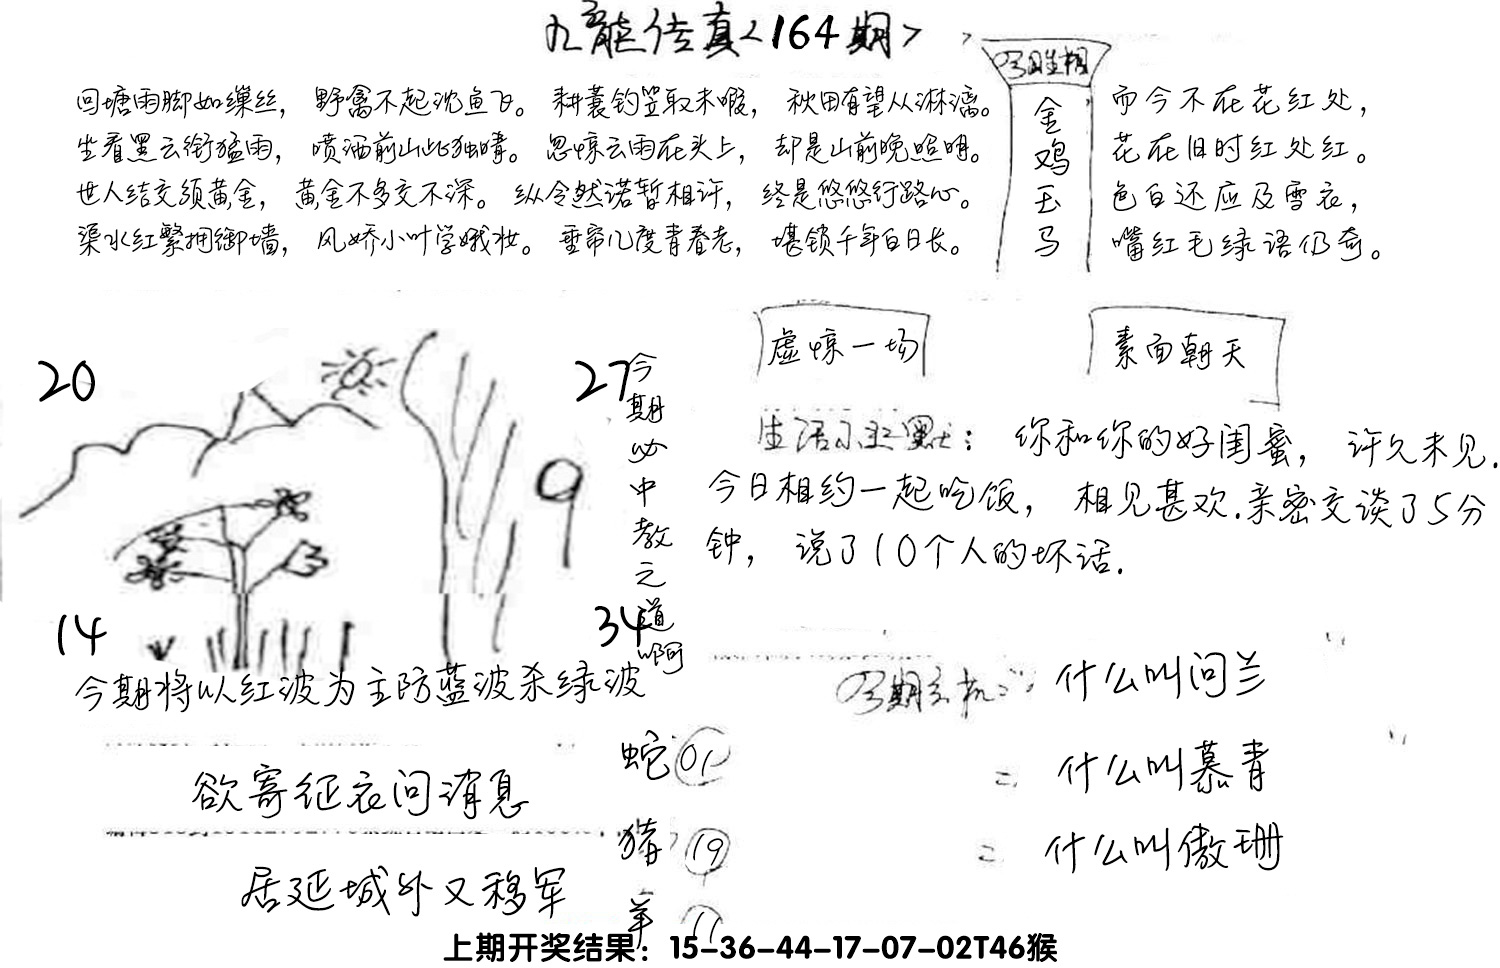 九龍传真<164期>
回塘雨脚如缫丝，野禽不起沈鱼飞。耕蓑钓笠取未暇，秋田有望从淋漓。
坐看黑云衔猛雨，喷洒前山此独晴。忽惊云雨在头上，却是山前晚照明。
世人结交须黄金，黄金不多交不深。纵令然诺暂相许，终是悠悠行路心。
渠水红繁拥御墙，风娇小叶学娥妆。垂帘几度青春老，堪锁千年白日长。
金鸡玉马
而今不在花红处，
花在旧时红处红。
色白还应及雪衣，
嘴红毛绿语仍奇。
20
27
9
14
34
今期必中教之道啊
虚惊一场
素面朝天
你和你的好闺蜜，许久未见.
今日相约一起吃饭，相见甚欢.亲密交谈了5分
钟，说了10个人的坏话.
今期将以红波为主防蓝波杀绿波
什么叫问兰
二 什么叫慕青
二 什么叫傲珊
欲寄征衣问消息
居延城外又移军
蛇 01
猪 19
羊 11
上期开奖结果：15-36-44-17-07-02T46猴